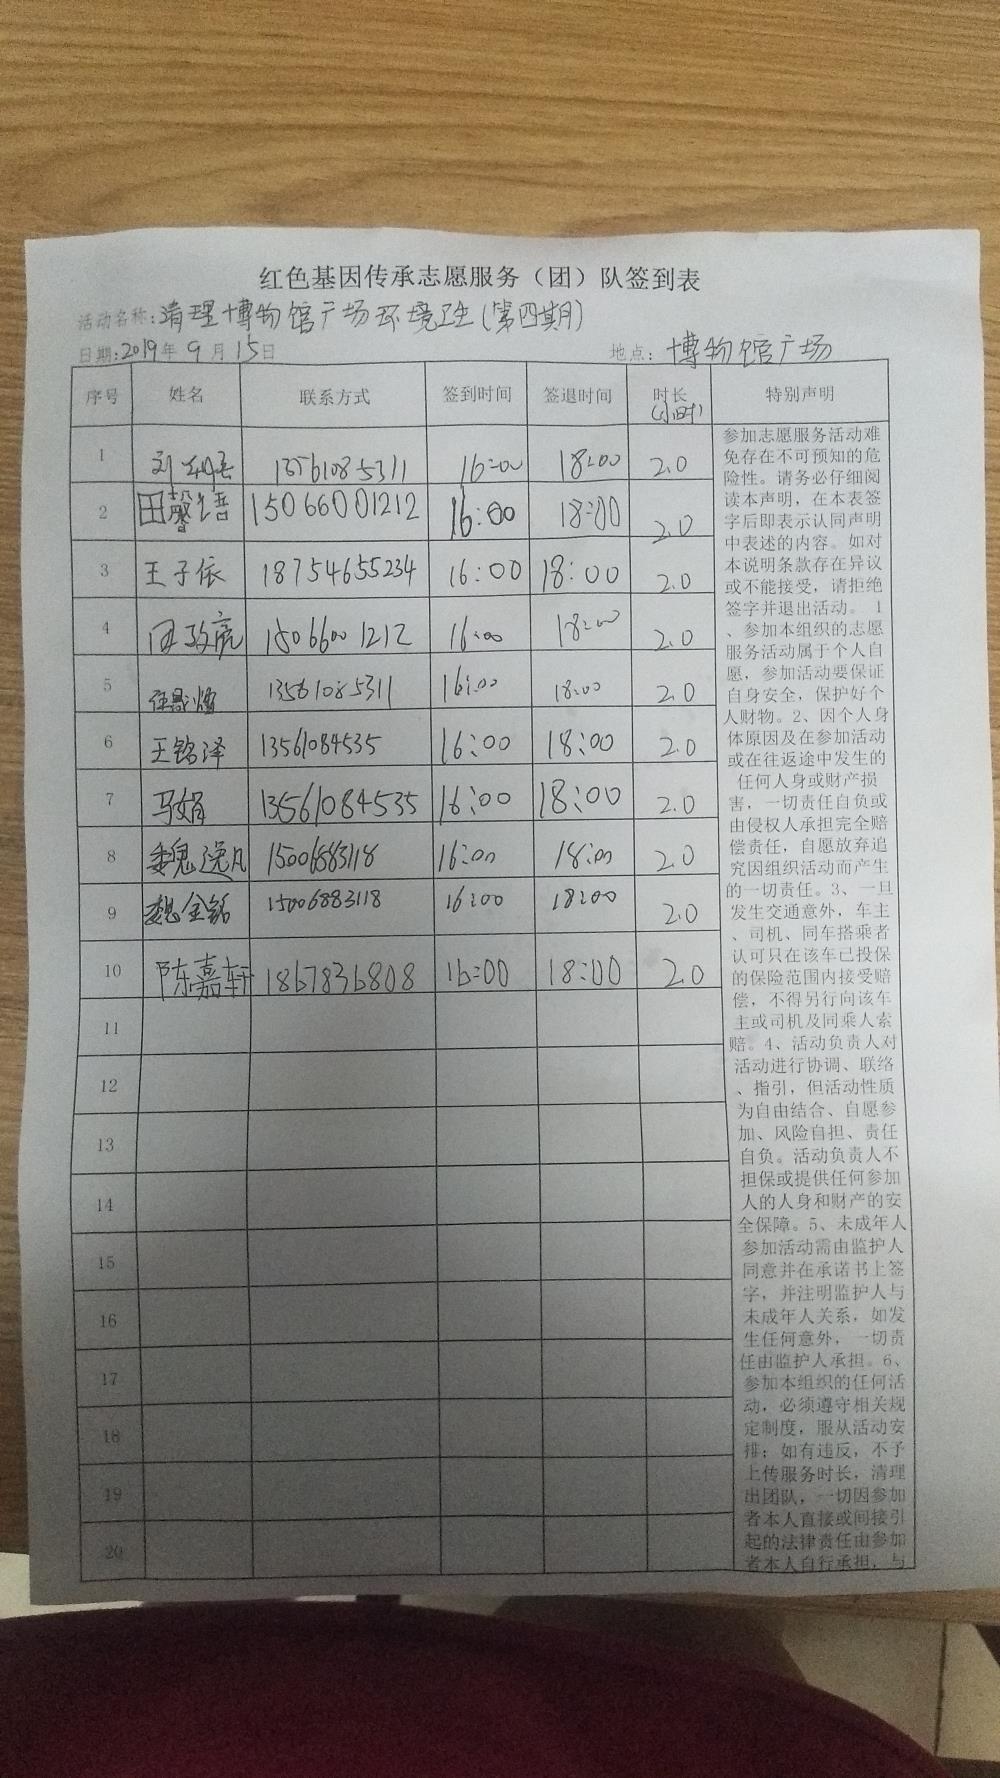 红色基因传承志愿服务（团）队签到表
活动名称:清理博物馆广场环境卫生(第四期)
日期:2019年9月15日 地点: 博物馆广场
序号 姓名 联系方式 签到时间 签退时间 时长(小时) 特别声明
1 刘 13561085311 16:00 18:00 2.0
2 田馨语 15066001212 16:00 18:00 2.0
3 王子依 18754655234 16:00 18:00 2.0
4 田政亮 15066001212 16:00 18:00 2.0
5 13561085311 16:00 18:00 2.0
6 王铭泽 13561084535 16:00 18:00 2.0
7 马娟 13561084535 16:00 18:00 2.0
8 魏逸凡 15006883118 16:00 18:00 2.0
9 魏金铭 15006883118 16:00 18:00 2.0
10 陈嘉轩 1867836808 16:00 18:00 2.0
11
12
13
14
15
16
17
18
19
20
参加志愿服务活动难
免存在不可预知的危
险性。请务必仔细阅
读本声明，在本表签
字后即表示认同声明
中表述的内容。如对
本说明条款存在异议
或不能接受，请拒绝
签字并退出活动。 1
、参加本组织的志愿
服务活动属于个人自
愿，参加活动要保证
自身安全，保护好个
人财物。2、因个人身
体原因及在参加活动
或在往返途中发生的
任何人身或财产损
害，一切责任自负或
由侵权人承担完全赔
偿责任，自愿放弃追
究因组织活动而产生
的一切责任。3、一旦
发生交通意外，车主
、司机、同车搭乘者
认可只在该车已投保
的保险范围内接受赔
偿，不得另行向该车
主或司机及同乘人索
赔。4、活动负责人对
活动进行协调、联络
、指引，但活动性质
为自由结合、自愿参
加、风险自担、责任
自负。活动负责人不
担保或提供任何参加
人的人身和财产的安
全保障。5、未成年人
参加活动需由监护人
同意并在承诺书上签
字，并注明监护人与
未成年人关系，如发
生任何意外，一切责
任由监护人承担。6、
参加本组织的任何活
动，必须遵守相关规
定制度，服从活动安
排；如有违反，不予
上传服务时长，清理
出团队，一切因参加
者本人直接或间接引
起的法律责任由参加
者本人自行承担，与